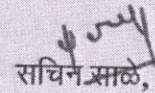 सचिन साळे,